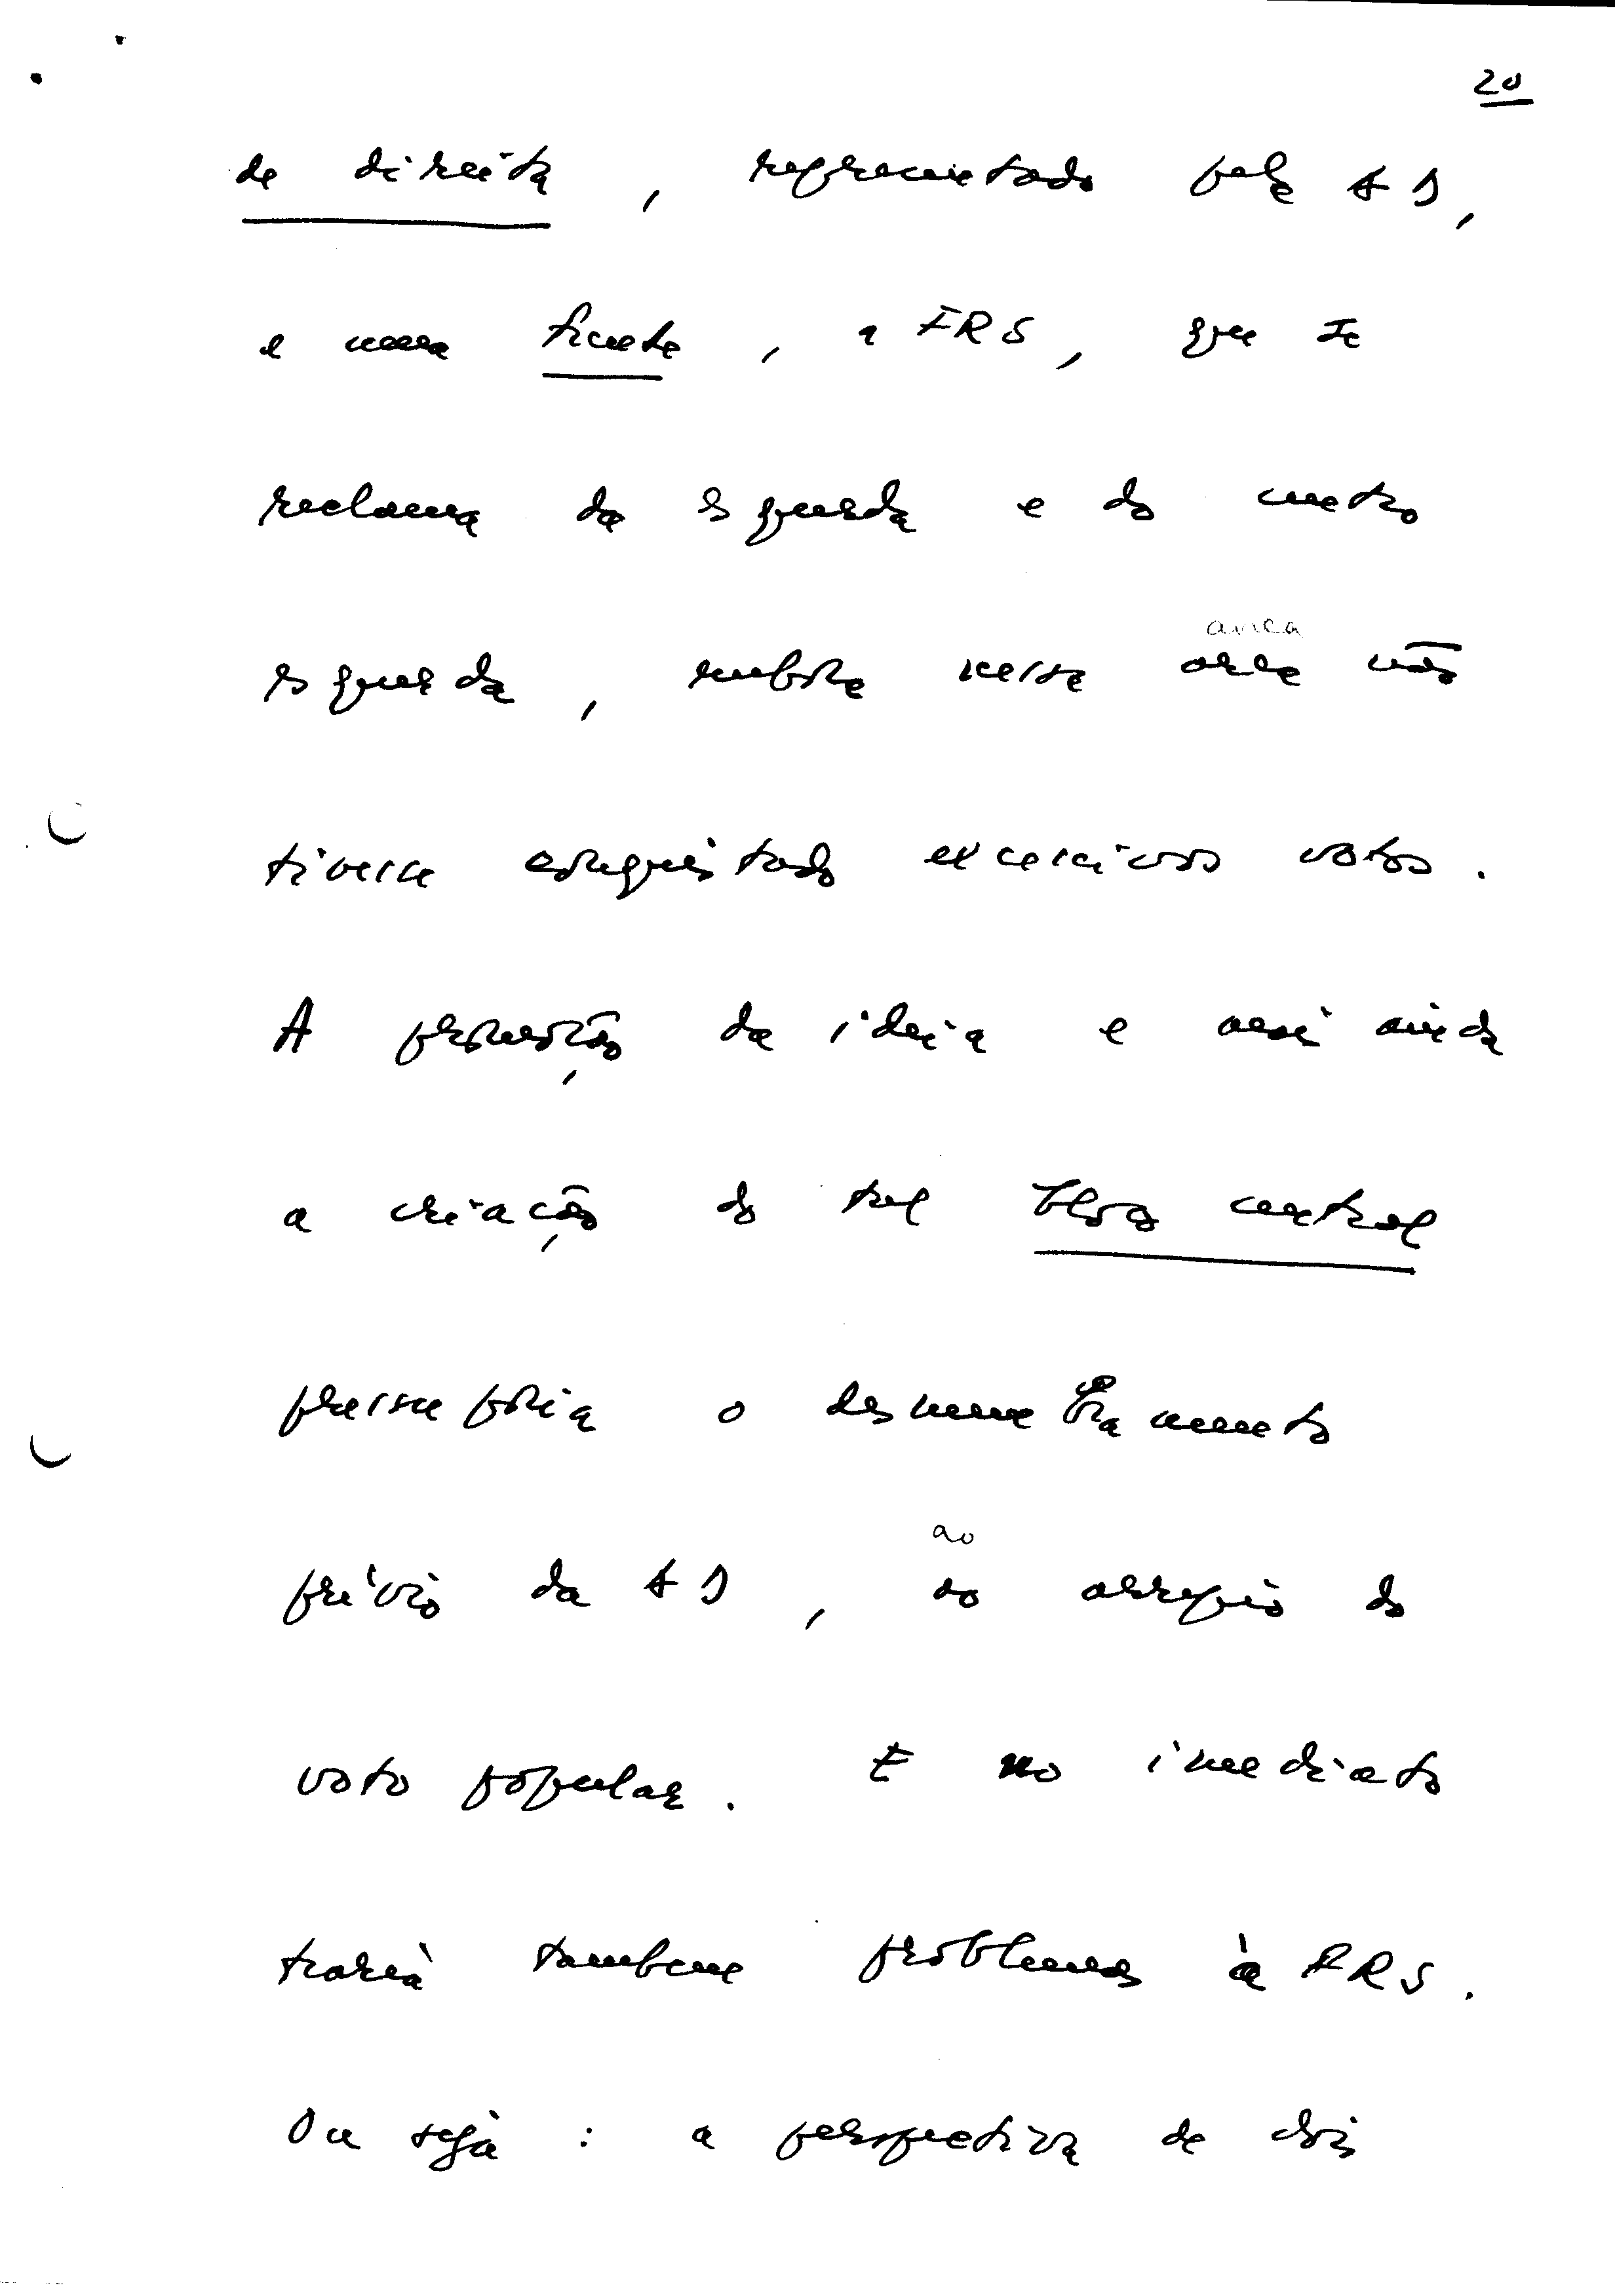 20
de direita, representado pela AD,
e uma frente, a FRS, que se
reclama da esquerda e do centro
area
esquerda, embora nessa area não
tivesse conquistado excessivos votos.
A promoção da ideia e mais ainda
a criação do tal bloco central
pressuporia o desmembramento
ao
prévio da AD, ao arrepio do
voto popular. E no imediato
traria tambem problemas à FRS.
Ou seja: a perspectiva de dois